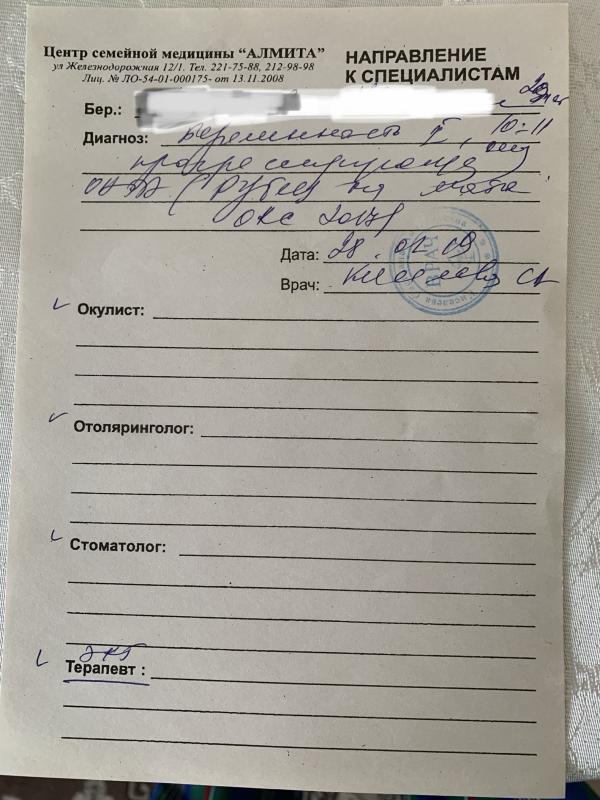 Центр семейной медицины “АЛМИТА”
ул Железнодорожная 12/1. Тел. 221-75-88, 212-98-98
Лиц. № ЛО-54-01-000175- от 13.11.2008
НАПРАВЛЕНИЕ
К СПЕЦИАЛИСТАМ
Бер.:
Диагноз: Беременность II, 10-11
прогрессирующая
ОАА (рубец на матке
2017)
Дата: 28.01.19
Врач:
ВРАЧ
Окулист:
Отоляринголог:
Стоматолог:
ЭКГ
Терапевт :